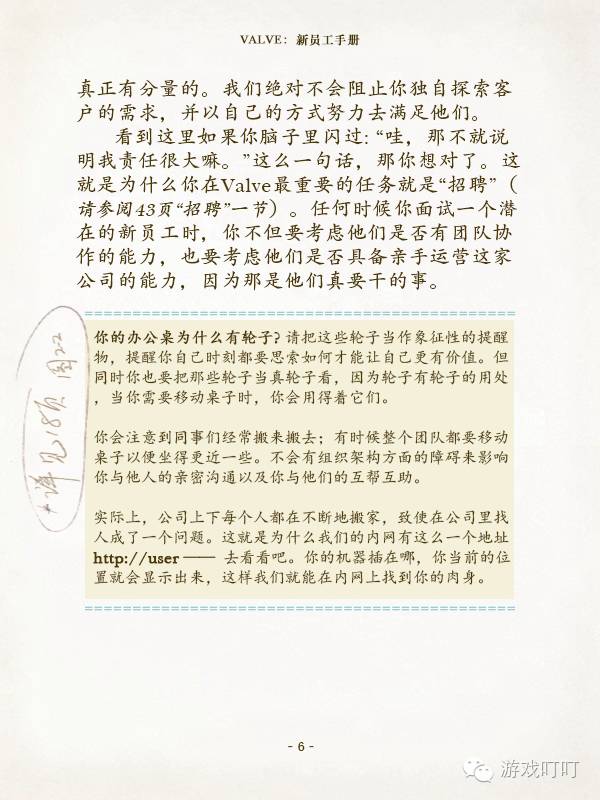 VALVE：新员工手册
真正有分量的。我们绝对不会阻止你独自探索客
户的需求，并以自己的方式努力去满足他们。
看到这里如果你脑子里闪过：“哇，那不就说
明我责任很大嘛。”这么一句话，那你想对了。这
就是为什么你在Valve最重要的任务就是“招聘”（
请参阅43页“招聘”一节）。任何时候你面试一个潜
在的新员工时，你不但要考虑他们是否有团队协
作的能力，也要考虑他们是否具备亲手运营这家
公司的能力，因为那是他们真要干的事。
*详见18页 图2-2
你的办公桌为什么有轮子? 请把这些轮子当作象征性的提醒
物，提醒你自己时刻都要思索如何才能让自己更有价值。但
同时你也要把那些轮子当真轮子看，因为轮子有轮子的用处
，当你需要移动桌子时，你会用得着它们。
你会注意到同事们经常搬来搬去；有时候整个团队都要移动
桌子以便坐得更近一些。不会有组织架构方面的障碍来影响
你与他人的亲密沟通以及你与他们的互帮互助。
实际上，公司上下每个人都在不断地搬家，致使在公司里找
人成了一个问题。这就是为什么我们的内网有这么一个地址
http://user —— 去看看吧。你的机器插在哪，你当前的位
置就会显示出来，这样我们就能在内网上找到你的肉身。
- 6 -
游戏叮叮